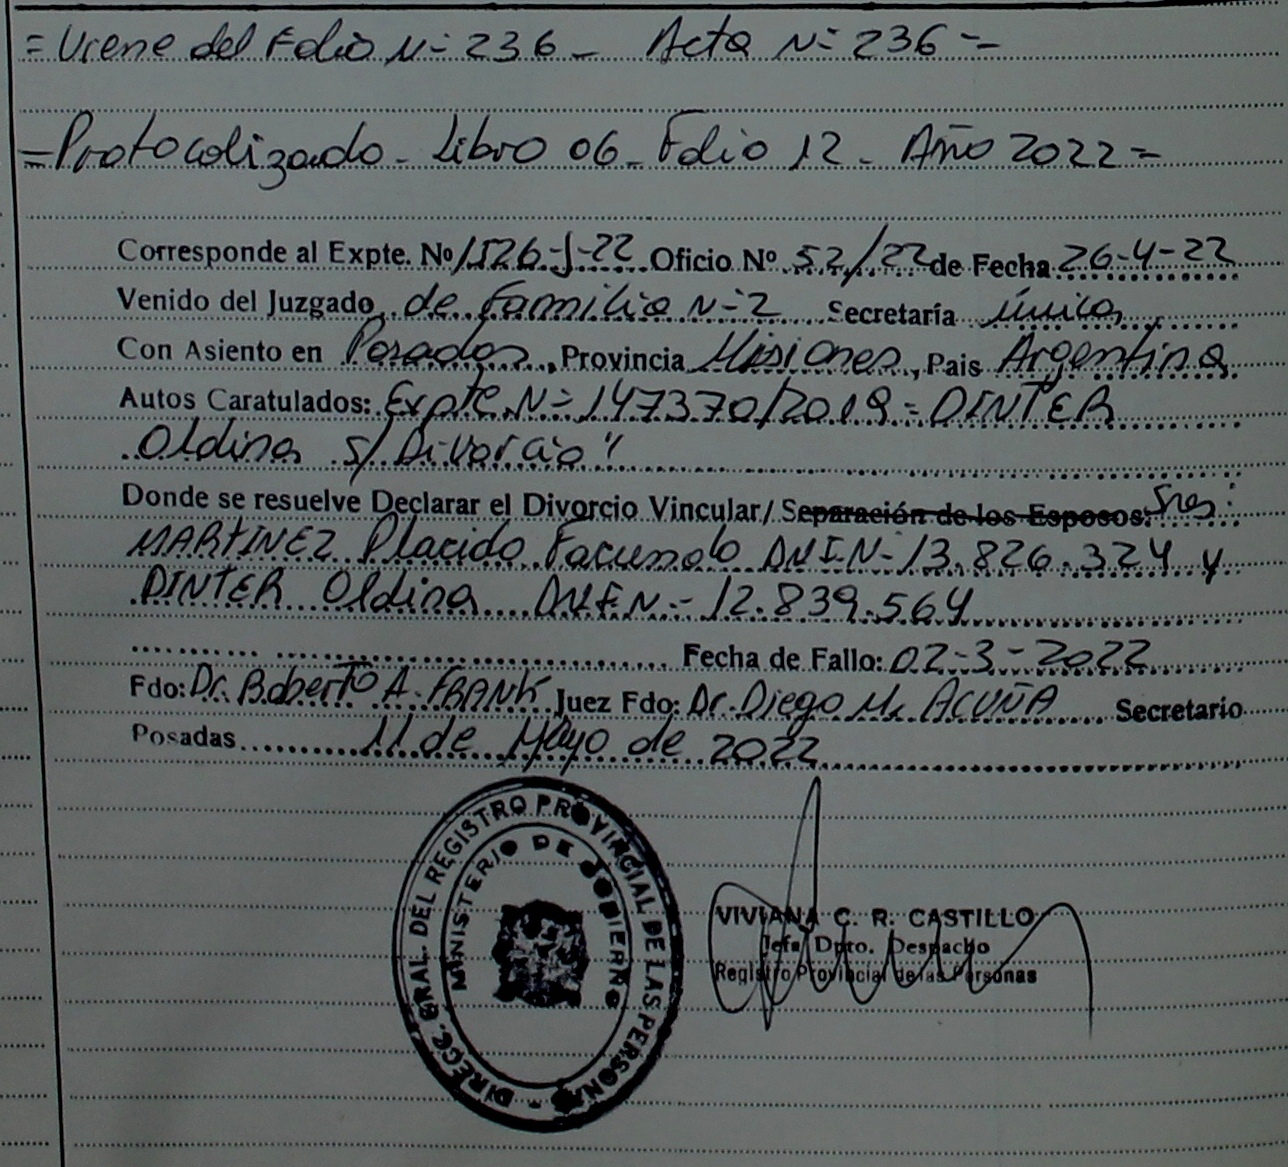 = Viene del Folio N= 236 - Acta N= 236 =
= Protocolizado - Libro 06 - Folio 12 - Año 2022 =
Corresponde al Expte. Nº 1526-J-22 Oficio Nº 52/22 de Fecha 26-4-22
Venido del Juzgado de Familia N=2 Secretaría única
Con Asiento en Posadas, Provincia Misiones, Pais Argentina
Autos Caratulados: Expte. N= 147370/2019 = DINTER
Oldina s/ Divorcio"
Donde se resuelve Declarar el Divorcio Vincular / Separación de los Esposos: Sres:
MARTINEZ Placido Facundo DNI N- 13.826.324 y
DINTER Oldina DNI N- 12.839.564
Fecha de Fallo: 02-3-2022
Fdo: Dr. Roberto A. FRANK Juez Fdo: Dr. Diego M. ACUÑA Secretario
Posadas 11 de Mayo de 2022
DIRECC. GRAL. DEL REGISTRO PROVINCIAL DE LAS PERSONAS -
MINISTERIO DE GOBIERNO
VIVIANA C. R. CASTILLO
Jefa Dpto. Despacho
Registro Provincial de las Personas